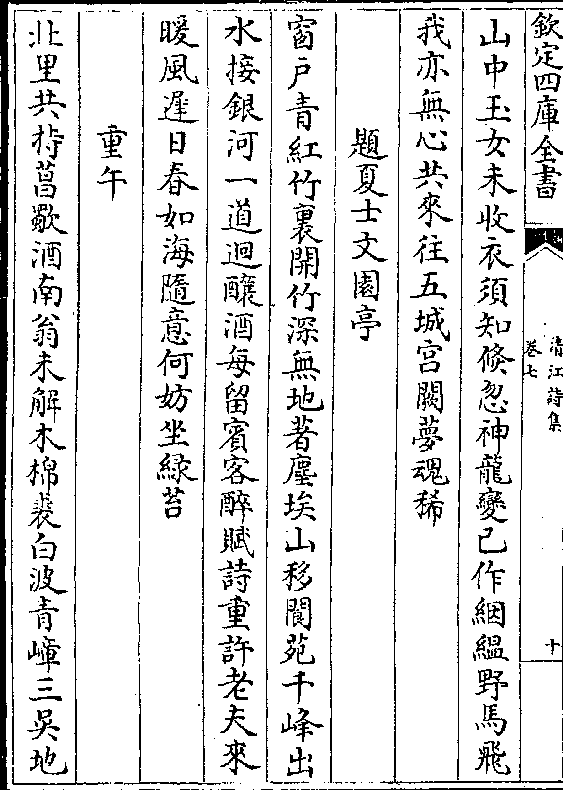 欽定四庫全書
清江詩集
卷七
十
山中玉女未收衣須知倐忽神龍變已作絪縕野馬飛
我亦無心共來往五城宮闕夢魂稀
題夏士文園亭
窗戶青紅竹裏開竹深無地著塵埃山移閬苑千峰出
水接銀河一道迴釀酒每留賓客醉賦詩重許老夫來
暖風遲日春如海隨意何妨坐綠苔
重午
北里共持菖歜酒南翁未解木棉裘白波青嶂三吳地